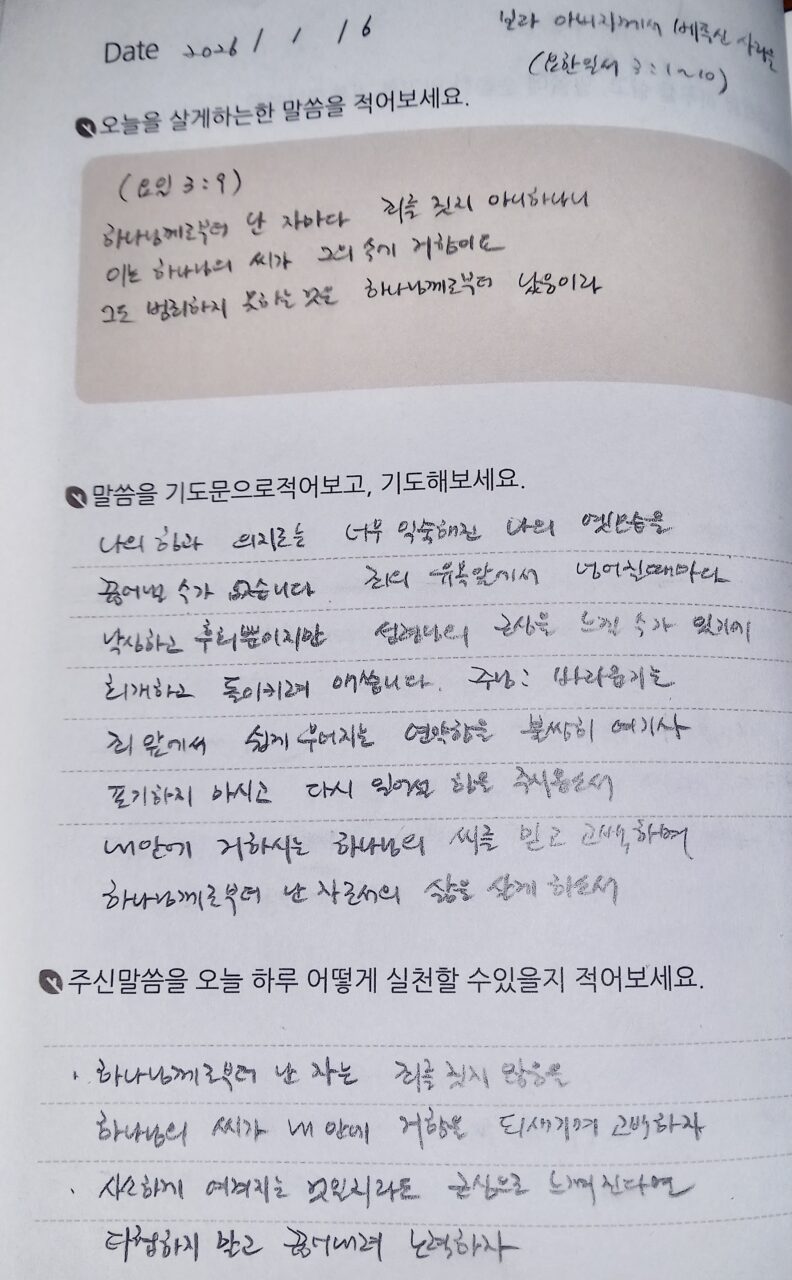 보라 아버지께서 베푸신 사랑을
Date 2026 / 1 / 6
(요한일서 3:1~10)
오늘을 살게하는한 말씀을 적어보세요.
(요일 3:9)
하나님께로부터 난 자마다 죄를 짓지 아니하나니
이는 하나님의 씨가 그의 속에 거함이요
그도 범죄하지 못하는 것은 하나님께로부터 났음이라
말씀을 기도문으로적어보고, 기도해보세요.
나의 힘과 의지로는 너무 익숙해진 나의 옛모습을
끊어낼 수가 없습니다. 죄의 유혹앞에서 넘어질때마다
낙심하고 후회뿐이지만 성령님의 근심을 느낄 수가 있기에
회개하고 돌이키려 애씁니다. 주님: 바라옵기는
죄 앞에서 쉽게 무너지는 연약함을 불쌍히 여기사
포기하지 마시고 다시 일어설 힘을 주시옵소서
내안에 거하시는 하나님의 씨를 믿고 고백하며
하나님께로부터 난 자로서의 삶을 살게 하소서
주신말씀을 오늘 하루 어떻게 실천할 수있을지 적어보세요.
· 하나님께로부터 난 자는 죄를 짓지 않음을
하나님의 씨가 내 안에 거함을 되새기며 고백하자
· 사소하게 여겨지는 것일지라도 근심으로 느껴진다면
타협하지 말고 끊어내려 노력하자